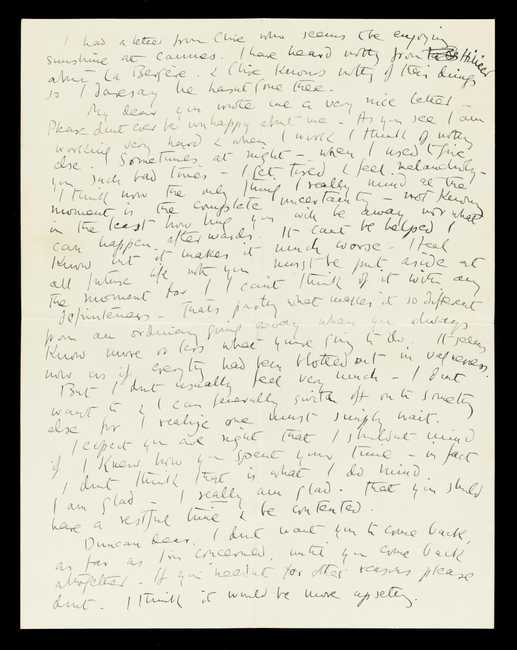 I had a letter from Clive who seems to be enjoying
sunshine at Cannes. I have heard nothing from
about La Bergère. & Clive knows nothing of their doings
so I daresay he hasn't gone there.
My dear you wrote me a very nice letter –
Please don't ever be unhappy about me – As you see I am
working very hard & when I work I think of nothing
else. Sometimes at night – when I used to give
you such bad times – I get tired & feel melancholy –
I think now the only thing I really mind at the
moment is the complete uncertainty – not knowing
in the least how long you will be away nor what
can happen afterwards. It can't be helped I
know but it makes it much worse – I feel
all future life with you must be put aside at
the moment for I can't think of it with any
definiteness – That's partly what makes it so different
from an ordinary going away when you always
know more or less what you're going to do. It seems
now as if everything had been blotted out in vagueness.
But I don't usually feel very much – I don't
want to & I can generally switch off on to something
else for I realize one must simply wait.
I expect you are right that I shouldn't mind
if I knew how you spent your time – in fact
I don't think that is what I do mind.
I am glad – I really am glad. that you should
have a restful time & be contented.
Duncan dear, I don't want you to come back,
as far as I'm concerned, until you come back
altogether. If you needn't for other reasons please
don't. I think it would be more upsetting.